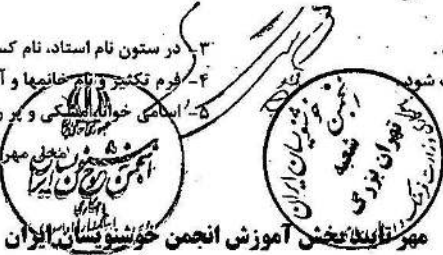 ۳- در ستون نام استاد، نام کس
شود.
۴- فرم تکثیر و نام خانمها و آ
۵- اسامی خوانا، مشکی و پر ر
محل مهر
انجمن خوشنویسان ایران
انجمن خوشنویسان ایران
شعبه
تهران بزرگ
مهر تایید بخش آموزش انجمن خوشنویسان ایران